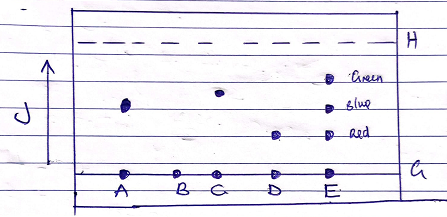 H
Green
Blue
J
Red
G
A B C D E